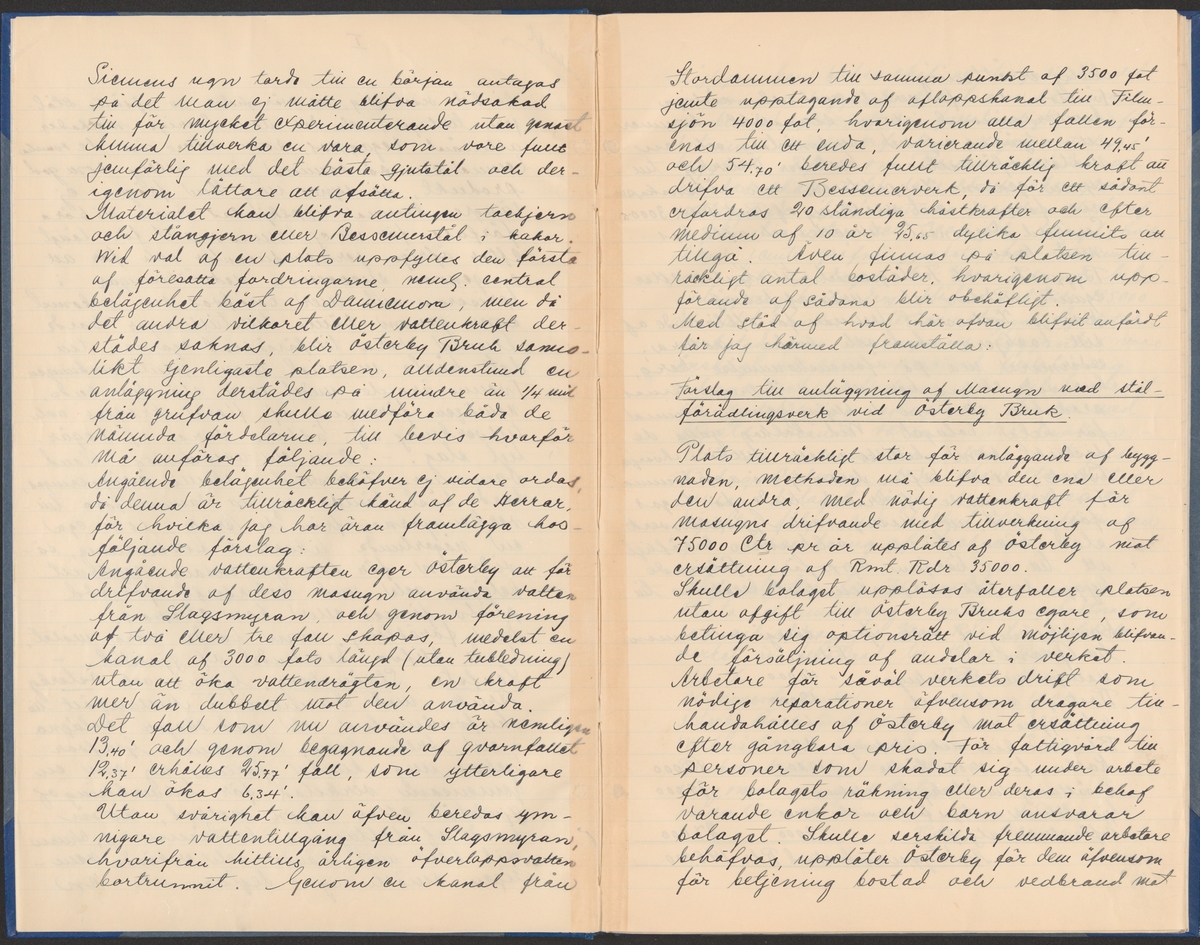 Siemens ugn torde till en början antagas
på det man ej måtte blifva nödsakad
till för mycket experimenterande utan genast
kunna tillverka en vara, som vore fullt
jemförlig med det bästa gjutstål och der-
igenom lättare att afsätta.
Materialet kan blifva antingen tackjern
och stångjern eller Bessemerstål i kakor.
Wid val af en plats uppfylles den första
af föresatta fordringarne, neml. central
belägenhet bäst af Dannemora, men då
det andra vilkoret eller vattenkraft der-
städes saknas, blir Österby Bruk sanno-
likt tjenligaste platsen, alldenstund en
anläggning derstädes på mindre än 1/4 mil
från grufvan skulle medföra båda de
nämnda fördelarne, till bevis hvarför
må anföras följande:
Angående belägenhet behöfver ej vidare ordas,
då denna är tillräckligt känd af de Herrar,
för hvilka jag har äran framlägga hos-
följande förslag:
Angående vattenkraften eger Österby att för
drifvande af dess masugn använda vatten
från Slagsmyran, och genom förening
af två eller tre fall skapas, medelst en
kanal af 3000 fots längd (utan tubledning)
utan att öka vattendrägten, en kraft
mer än dubbelt mot den använda.
Det fall som nu användes är nemligen
13,40' och genom begagnande af qvarnfallet
12,37' erhålles 25,77' fall, som ytterligare
kan ökas 6,34'.
Utan svårighet kan äfven beredas ym-
nigare vattentillgång från Slagsmyran,
hvarifrån hittills årligen öfverloppsvatten
bortrunnit. Genom en kanal från
Stordammen till samma punkt af 3500 fot
jemte upptagande af afloppskanal till Film-
sjön 4000 fot, hvarigenom alla fallen för-
enas till ett enda, varierande mellan 49,45'
och 54,70' beredes fullt tillräcklig kraft att
drifva ett Bessemerverk, då för ett sådant
erfordras 20 ständiga hästkrafter och efter
medium af 10 år 25,65 dylika funnits att
tillgå. Även finnas på platsen till-
räckligt antal bostäder, hvarigenom upp-
förande af sådana blir obehöfligt.
Med stöd af hvad här ofvan blifvit anfördt
får jag härmed framställa:
Förslag till anläggning af Masugn med stål-
förädlingsverk vid Österby Bruk.
Plats tillräckligt stor för anläggande af bygg-
naden, methoden må blifva den ena eller
den andra, med nödig vattenkraft för
masugns drifvande med tillverkning af
75000 Ctr pr år upplåtes af Österby mot
ersättning af Rmt. Rdr 35000.
Skulle bolaget upplösas återfaller platsen
utan afgift till Österby Bruks egare, som
betinga sig optionsrätt vid möjligen blifvan-
de försäljning af andelar i verket.
Arbetare för såväl verkets drift som
nödige reparationer äfvensom dragare till-
handahålles af Österby mot ersättning
efter gångbara pris. För fattigvård till
personer som skadat sig under arbete
för bolagets räkning eller deras i behof
varande enkor och barn ansvarar
bolaget. Skulle serskilda fremmande arbetare
behöfvas, upplåter Österby för dem äfvensom
för betjening bostad och vedbrand mot